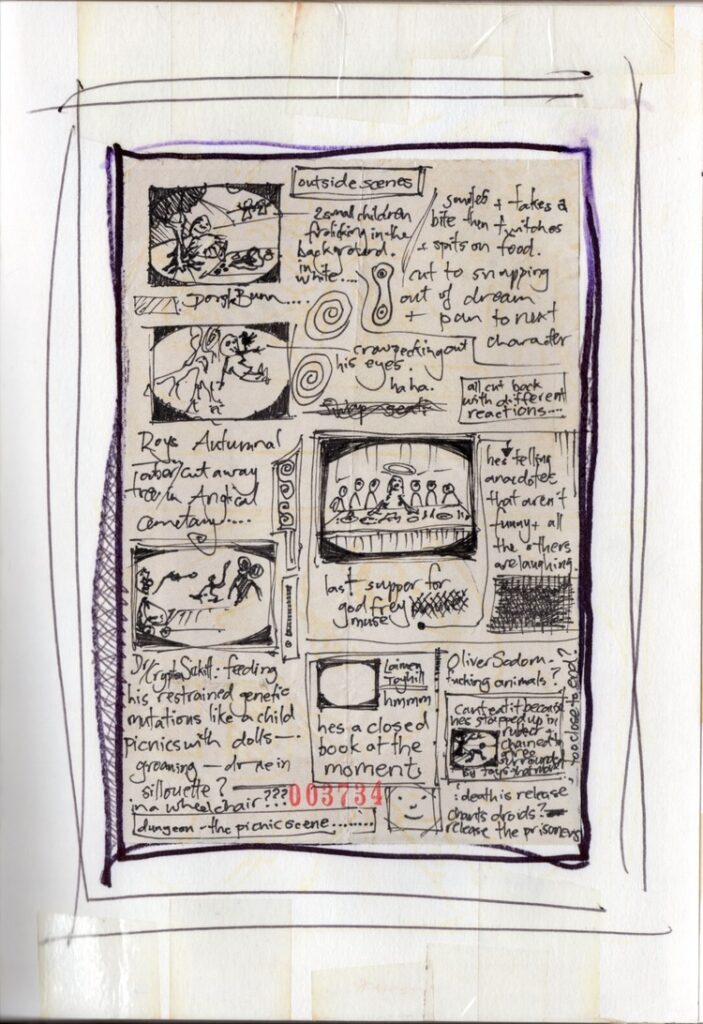 outside scenes
2 small children
frolicking in the
background.
in
white....
smiles + takes a
bite then twitches
+ spits on food.
cut to snapping
out of dream
+ pan to next
character
Bunn....
crow pecking out
his eyes.
haha.
swap seat
all cut back
with different
reactions....
Roys Autumnal
cut away
tree in Anglical
cemetary.....
hes telling
anecdotes
that aren't
funny + all
the others
are laughing.
last supper for
godfrey
muse
Dr feeding
his restrained genetic
mutations like a child
picnics with dolls—
groaning — dr in
sillouette?
in a wheelchair???
003734
dungeon - the picnic scene........
hmmm
hes a closed
book at the
moment.
Oliver Sodom -
fucking animals?
too close to end?
cant eat it because
hes strapped up in
rubber
chained to
a tree
surrounded
by toys that
'death is release
chants droids?
release the prisoners